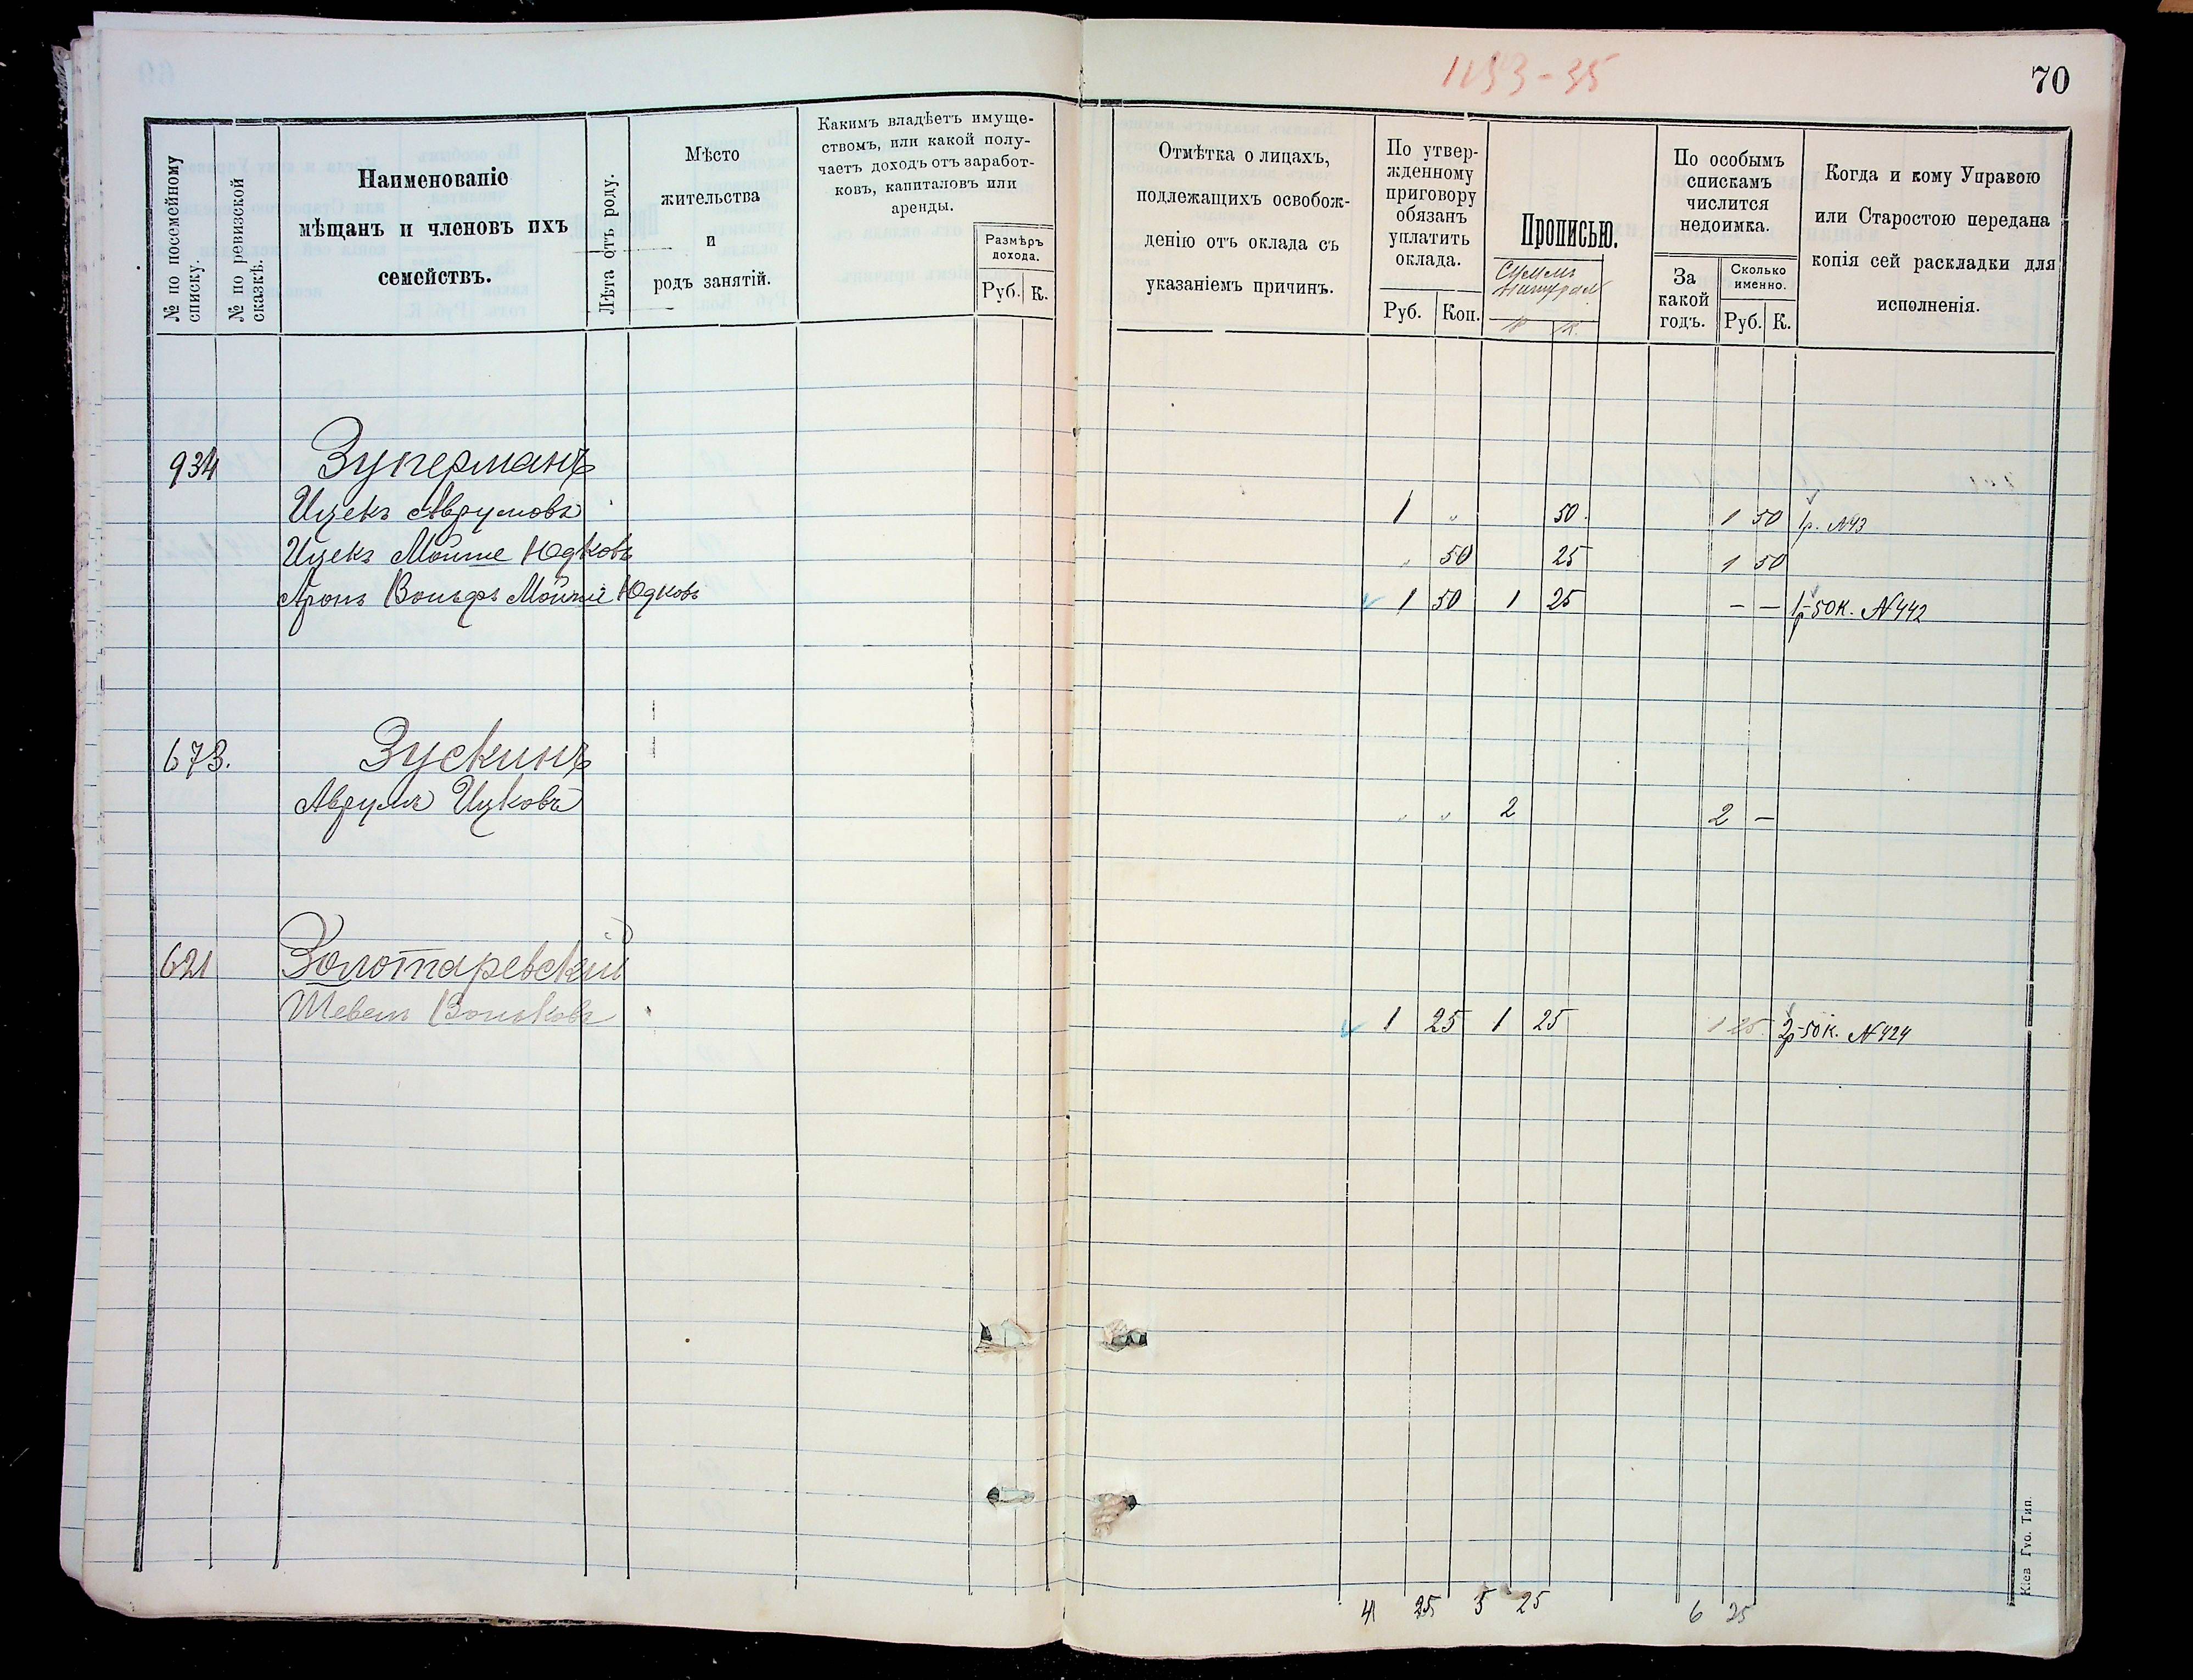 1133-35
70
№ по посемейному списку.
№ по ревизской сказкѣ.
Наименованіе
мѣщанъ и членовъ ихъ
семействъ.
Лѣта отъ роду.
Мѣсто
жительства
и
родъ занятій.
Какимъ владѣетъ имуще-
ствомъ, или какой полу-
чаетъ доходъ отъ заработ-
ковъ, капиталовъ или
аренды.
Размѣръ
дохода.
Руб. К.
Отмѣтка о лицахъ,
подлежащихъ освобож-
денію отъ оклада съ
указаніемъ причинъ.
По утвер-
жденному
приговору
обязанъ
уплатить
оклада.
Руб. Коп.
Прописью.
Р К.
По особымъ
спискамъ
числится
недоимка.
За
какой
годъ.
Сколько
именно.
Руб. К.
Когда и кому Управою
или Старостою передана
копія сей раскладки для
исполненія.
934 Зуперманъ
Ицекъ Аврумовъ 1 „ 50. 1 50 1р. №43
Ицекъ Мойше Юдковъ „ 50 25 1 50
Аронъ Вольфъ Мойше Юдковъ 1 50 1 25 — — 1р 50к. №442
673. Зускинъ
Аврумъ Ицковъ „ „ 2 2 —
621 Золотаревскій
Шевель Вольковъ 1 25 1 25 1 25 2р-50к. №424
4 25 5 25 6 25
Кіев Губ. Тип.